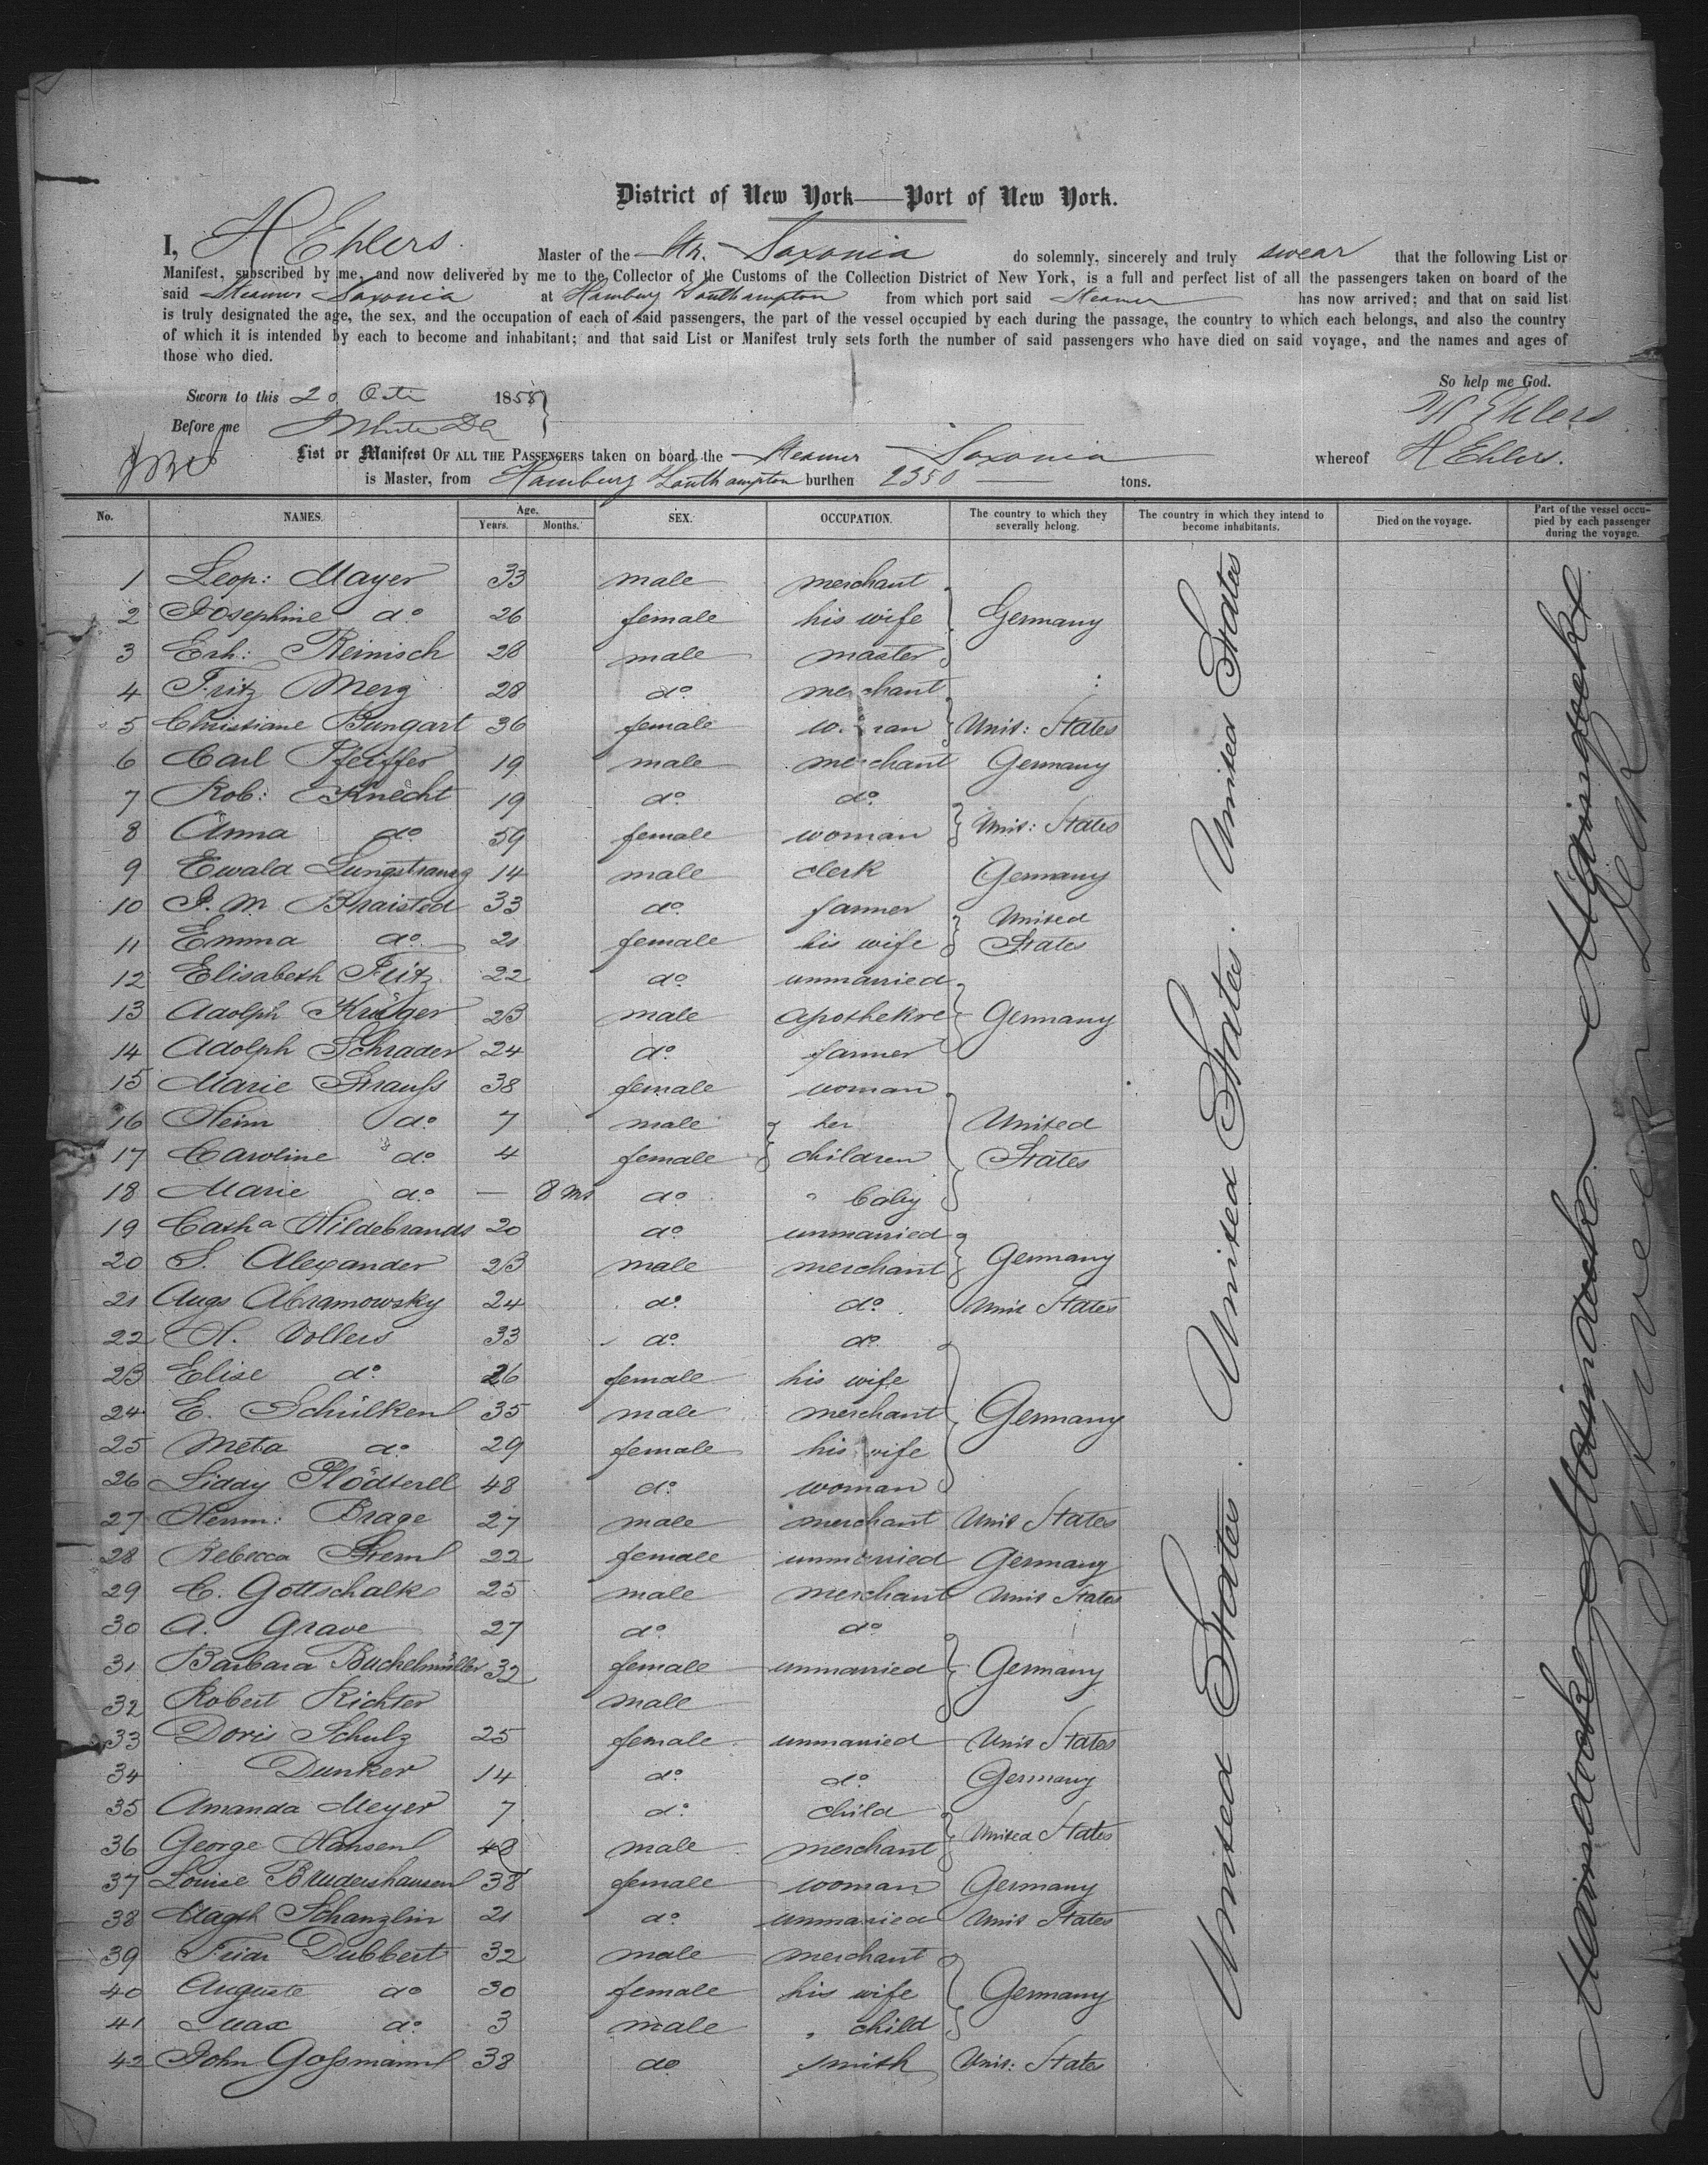 District of New York—Port of New York.
I, H Ehlers. Master of the Str. Saxonia do solemnly, sincerely and truly swear that the following List or
Manifest, subscribed by me, and now delivered by me to the Collector of the Customs of the Collection District of New York, is a full and perfect list of all the passengers taken on board of the
said Steamer Saxonia at Hamburg Southampton from which port said Steamer has now arrived; and that on said list
is truly designated the age, the sex, and the occupation of each of said passengers, the part of the vessel occupied by each during the passage, the country to which each belongs, and also the country
of which it is intended by each to become and inhabitant; and that said List or Manifest truly sets forth the number of said passengers who have died on said voyage, and the names and ages of
those who died.
So help me God.
Sworn to this 20 Octr 1858
H Ehlers
Before me
List or Manifest OF ALL THE PASSENGERS taken on board the Steamer Saxonia whereof H Ehlers.
is Master, from Hamburg Southampton burthen 2350 tons.
No. NAMES. Age. Years. Months. SEX. OCCUPATION. The country to which they severally belong. The country in which they intend to become inhabitants. Died on the voyage. Part of the vessel occupied by each passenger during the voyage.
1 Leop: Mayer 33 male merchant
2 Josephine do 26 female his wife Germany
3 Erh: Reinisch 28 male master
4 Fritz Merz 28 do merchant
5 Christiane Bungart 36 female woman Unit: States
6 Carl Pfeiffer 19 male merchant Germany
7 Rob: Knecht 19 do do
8 Anna do 59 female woman Unit: States
9 Ewald 14 male clerk Germany
10 J. M Braisted 33 do farmer United
11 Emma do 21 female his wife States
12 Elisabeth Fritz 22 do unmarried
13 Adolph Krüger 23 male apotheker Germany
14 Adolph Schrader 24 do farmer
15 Marie Strauss 38 female woman
16 Heinr do 7 male her United
17 Caroline do 4 female children States
18 Marie do — 8 ms do " baby
19 Catha Hildebrands 20 do unmarried
20 S. Alexander 23 male merchant Germany
21 Augs Abramowsky 24 do do Unit States
22 H. Vollers 33 do do
23 Elise do 26 female his wife
24 E. Schülken 35 male merchant Germany
25 Meta do 29 female his wife
26 Liddy 48 do woman
27 Herrm: Brage 27 male merchant Unit States
28 Rebecca 22 female unmarried Germany
29 C. Gottschalk 25 male merchant Unit States
30 A. Grave 27 do do
31 Barbara Buchelmüller 32 female unmarried Germany
32 Robert Richter male
33 Doris Schulz 25 female unmarried Unit States
34 Dunker 14 do do Germany
35 Amanda Meyer 7 do child
36 George Hansen 48 male merchant United States
37 Louise Brudershausen 38 female woman Germany
38 Magth Schanzlin 21 do unmarried Unit States
39 Dubbert 32 male merchant
40 Auguste do 30 female his wife Germany
41 Max do 3 male " child
42 John Gossmann 38 do smith Unit: States
United States. United States. United States. United States